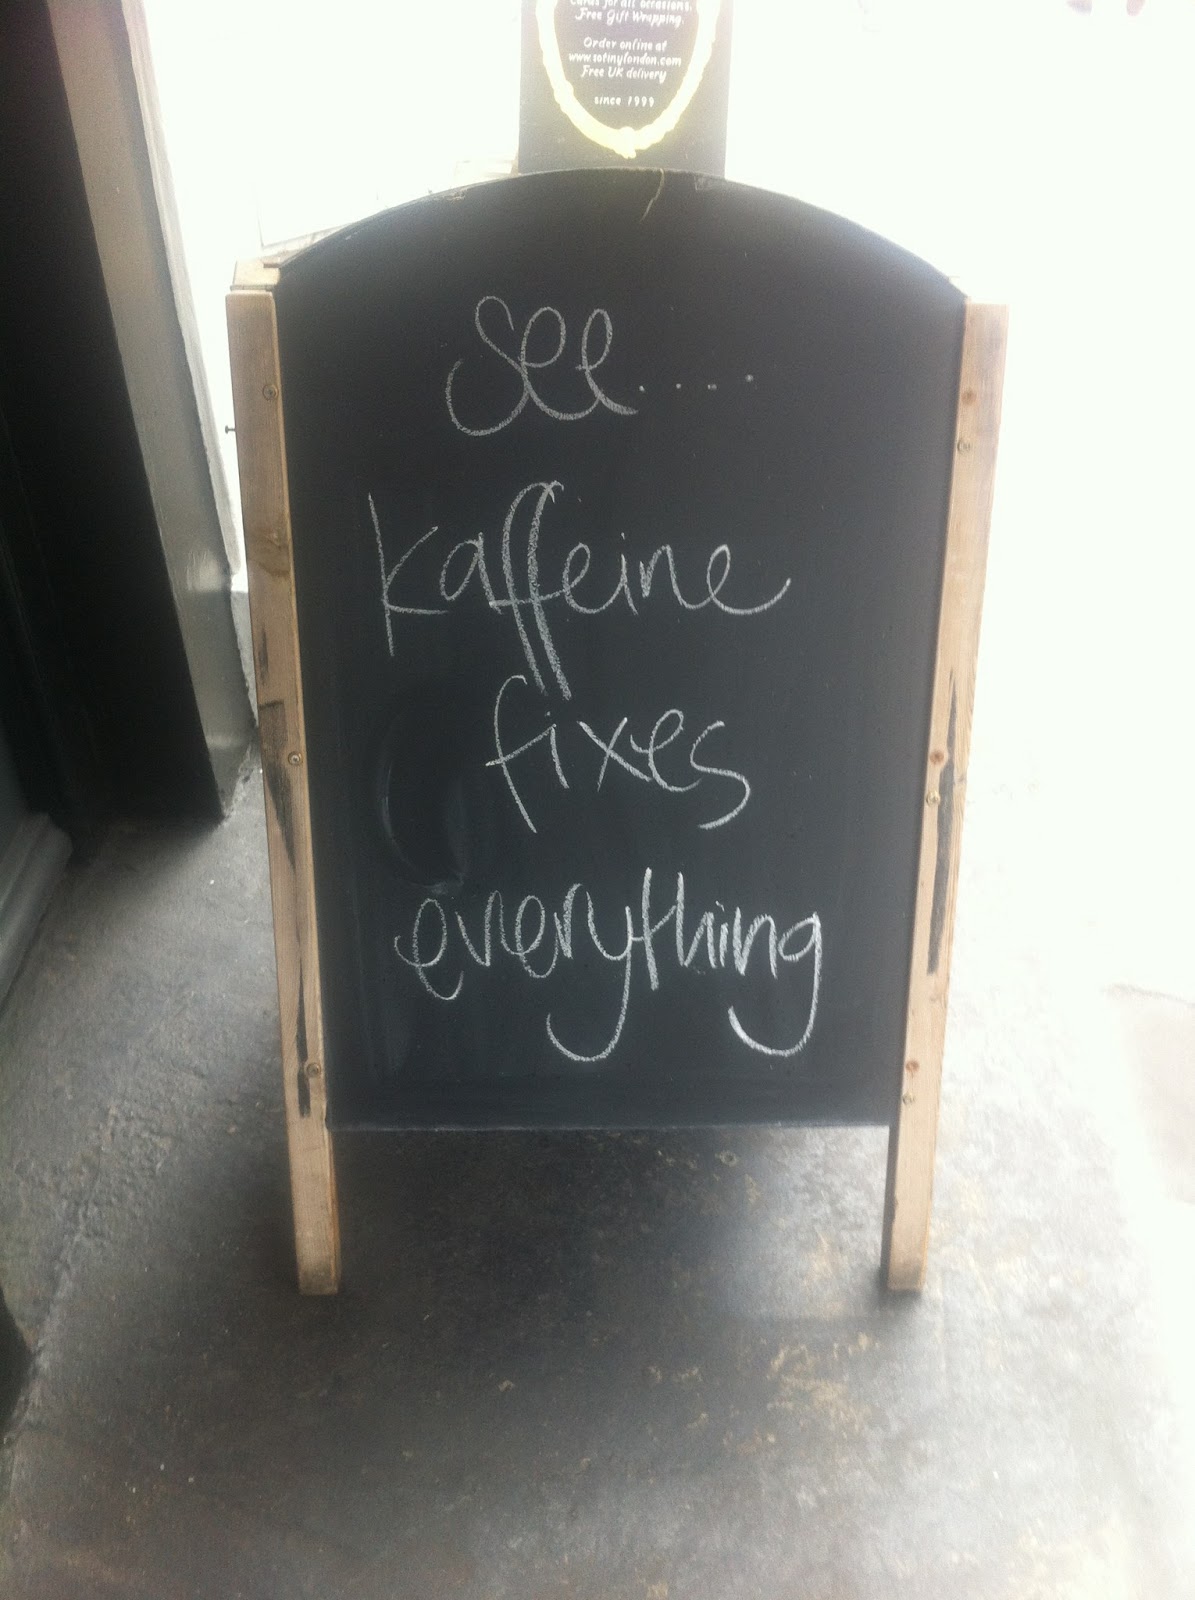 Cards for all occasions.
Free Gift Wrapping.
Order online at
www.sotinylondon.com
Free UK delivery
since 1999
See....
kaffeine
fixes
everything